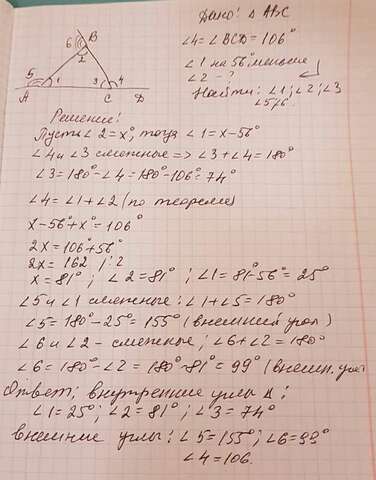 Дано: Δ ABC
∠4 = ∠BCD = 106°
∠1 на 56° меньше
∠2 - ?
Найти: ∠1; ∠2; ∠3
∠5; 6.
6 B
2
5 1 3 4
A C D
Решение:
Пусть ∠2 = x°, тогда ∠1 = x-56°
∠4 и ∠3 смежные => ∠3+∠4 = 180°
∠3 = 180° - ∠4 = 180° - 106° = 74°
∠4 = ∠1 + ∠2 (по теореме)
x - 56° + x° = 106°
2x = 106° + 56°
2x = 162 /:2
x = 81°; ∠2 = 81°; ∠1 = 81°-56° = 25°
∠5 и ∠1 смежные: ∠1 + ∠5 = 180°
∠5 = 180° - 25° = 155° (внешний угол)
∠6 и ∠2 - смежные; ∠6+∠2 = 180°
∠6 = 180° - ∠2 = 180° - 81° = 99° (внешн. угол
Ответ: внутренние углы Δ:
∠1 = 25°; ∠2 = 81°; ∠3 = 74°
внешние углы: ∠5 = 155°; ∠6 = 99°
∠4 = 106.